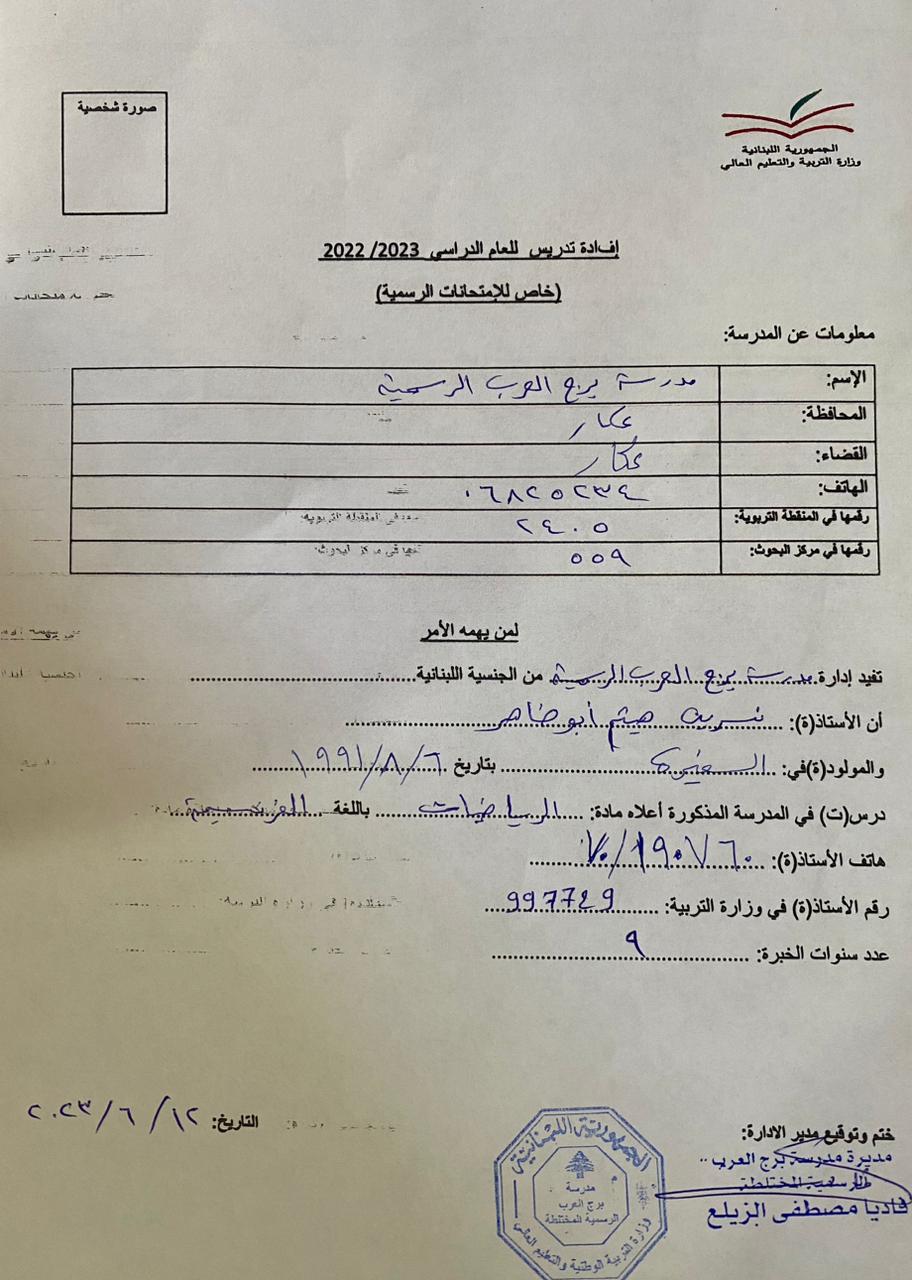 صورة شخصية
الجمهورية اللبنانية
وزارة التربية والتعليم العالي
إفادة تدريس للعام الدراسي 2023/ 2022
(خاص للإمتحانات الرسمية)
معلومات عن المدرسة:
الإسم: مدرسة برج العرب الرسمية
المحافظة: عكار
القضاء: عكار
الهاتف: ٠٦٨٢٥٢٣٤
رقمها في المنقطة التربوية: ٢٤٠٥
رقمها في مركز البحوث: ٥٥٩
لمن يهمه الأمر
تفيد إدارة مدرسة برج العرب الرسمية من الجنسية اللبنانية
أن الأستاذ(ة): نسرين هيثم أبو ضاهر
والمولود(ة)في: السفيرة بتاريخ ٦/٨/١٩٩١
درس(ت) في المدرسة المذكورة أعلاه مادة: الرياضيات باللغة الفرنسية
هاتف الأستاذ(ة): ٧٠/١٩٠٧٦٠
رقم الأستاذ(ة) في وزارة التربية: 997729
عدد سنوات الخبرة: ٩
التاريخ: ١٢/ ٦ /٢٠٢٣
ختم وتوقيع مدير الادارة:
مديرة مدرسة برج العرب
الرسمية المختلطة
فاديا مصطفى الزيلع
الجمهورية اللبنانية
مدرسة
برج العرب
الرسمية المختلطة
وزارة التربية الوطنية والتعليم العالي